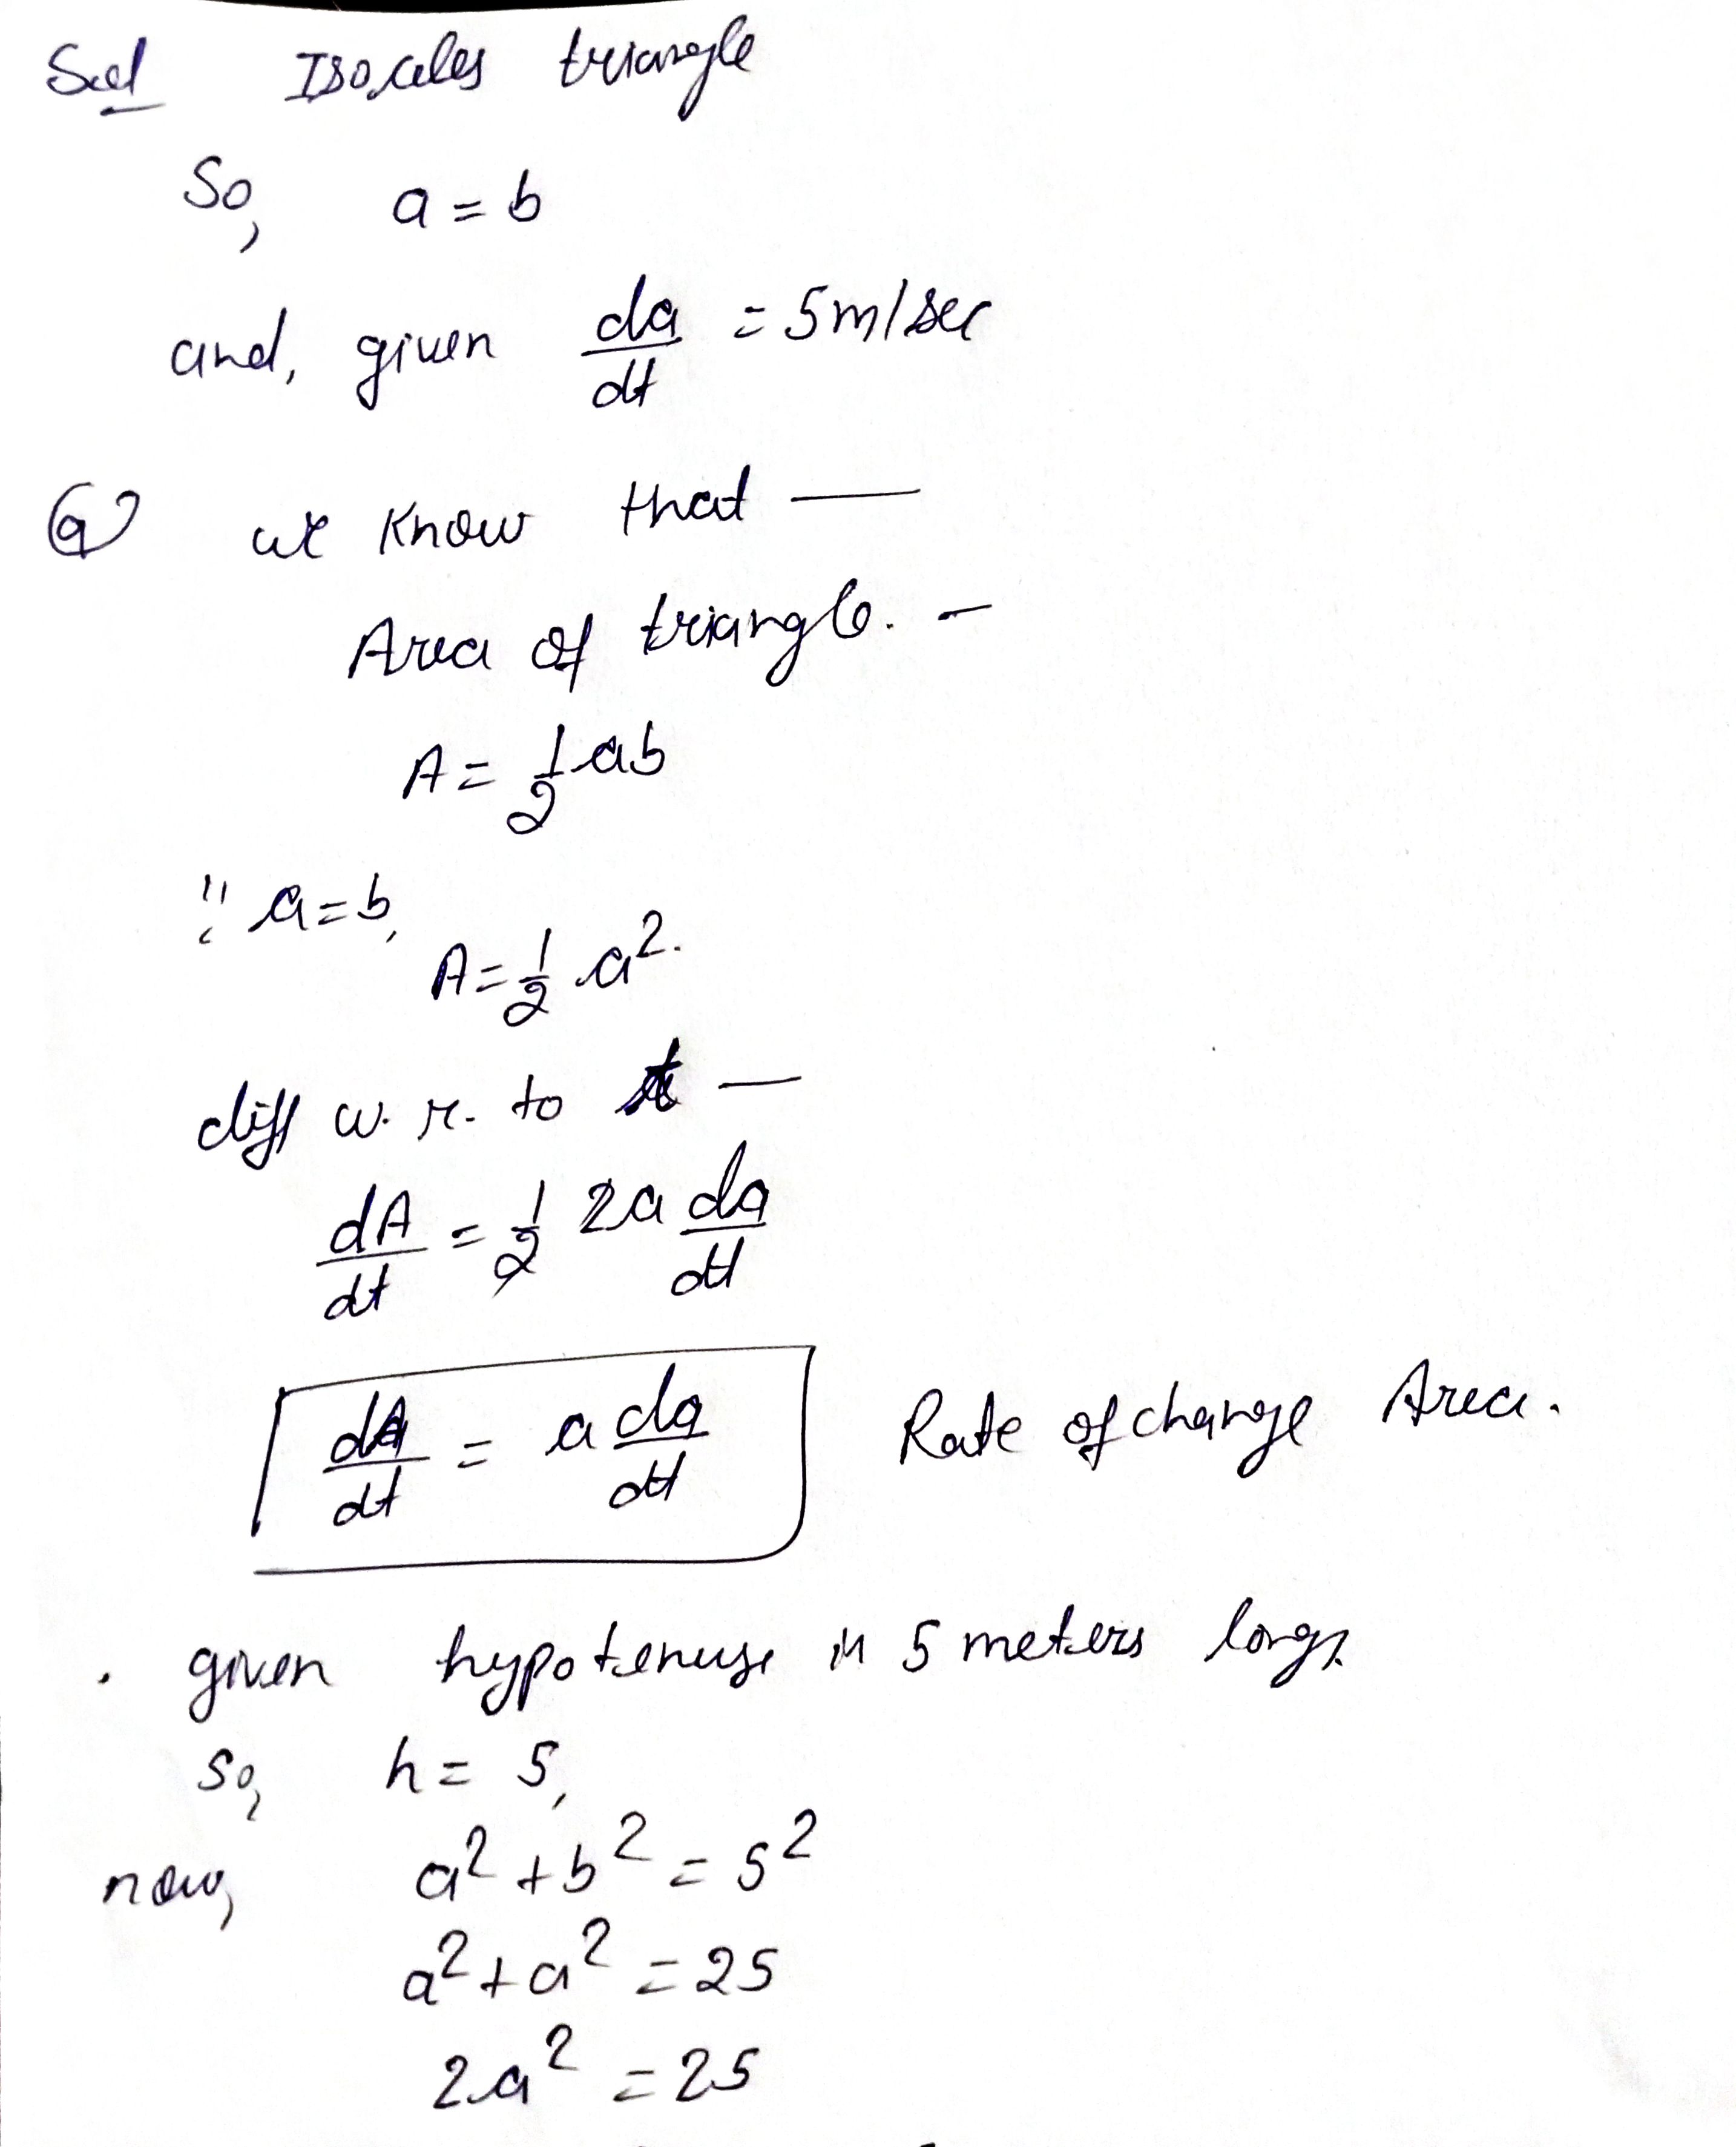 Sol Isoceles triangle
So, a = b
and, given da/dt = 5m/sec
(a) we know that —
Area of triangle. —
A = 1/2 ab
∵ a = b,
A = 1/2 a².
diff w. r. to t —
dA/dt = 1/2 2a da/dt
dA/dt = a da/dt Rate of change Area.
. given hypotenuse is 5 meters long.
So, h = 5,
now, a² + b² = 5²
a² + a² = 25
2a² = 25